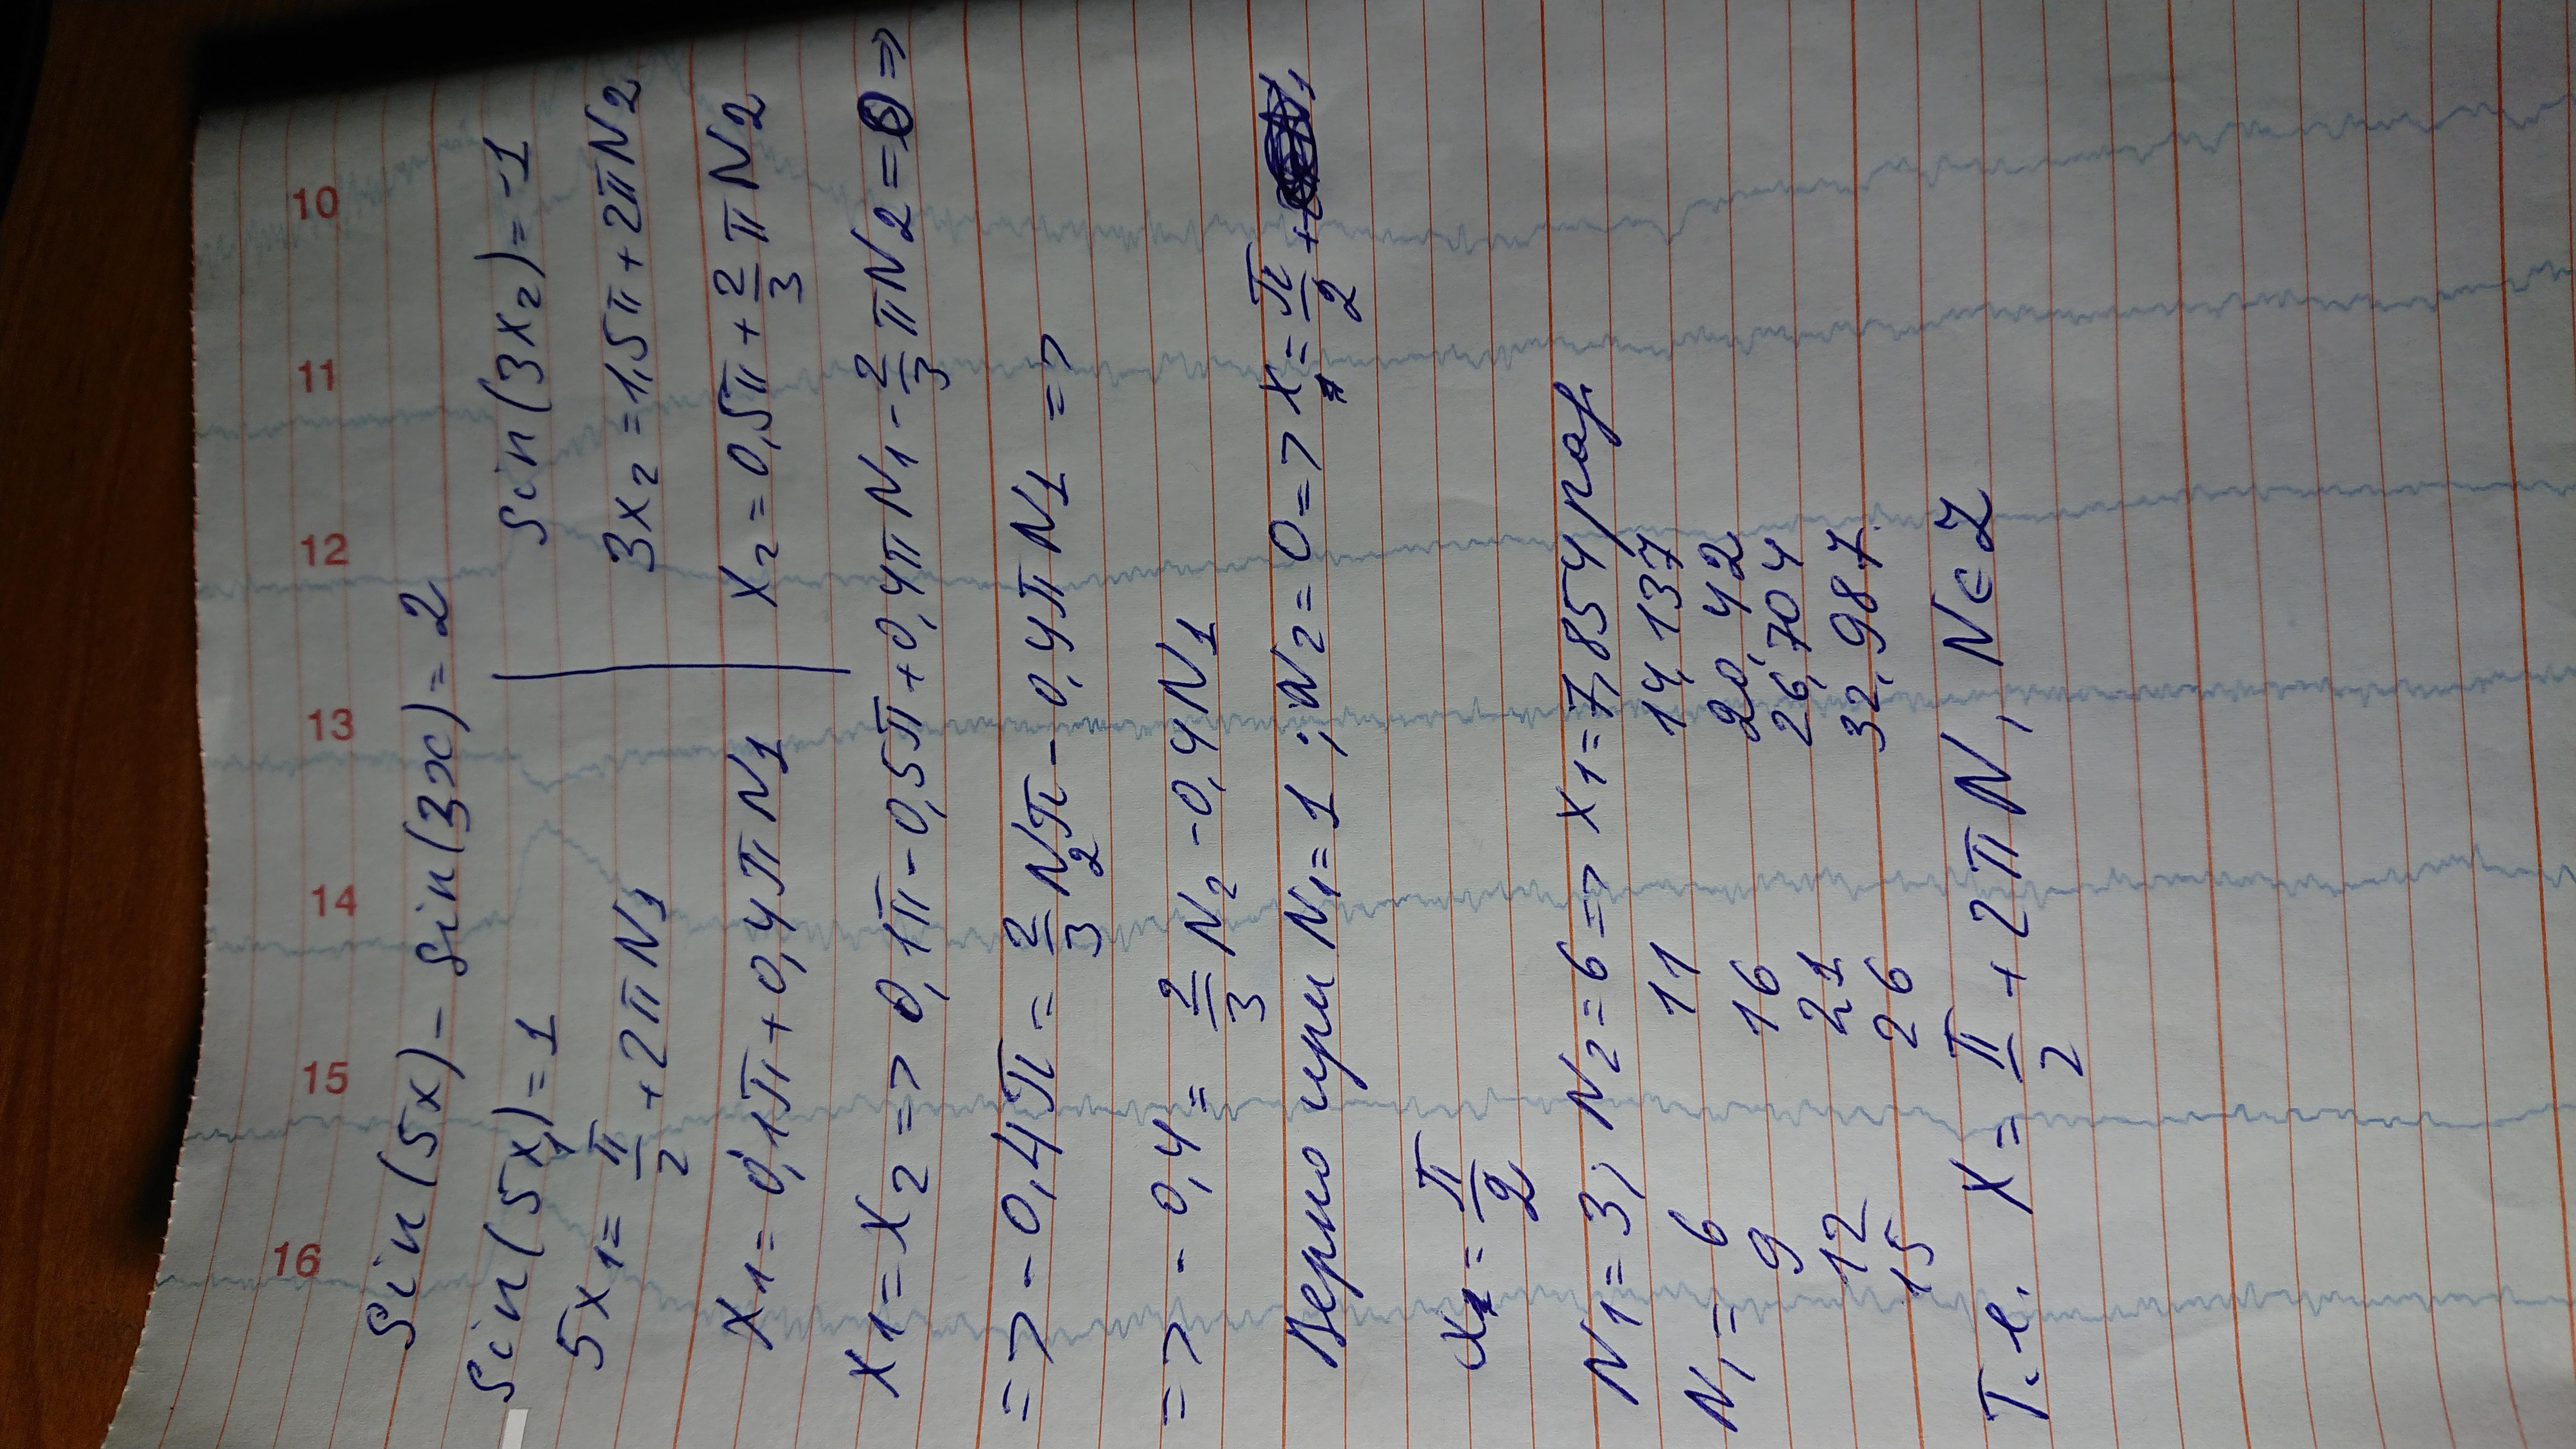 10 11 12 13 14 15 16
Sin(5x) - Sin(3x) = 2
Sin(5x₁) = 1 | Sin(3x₂) = -1
5x₁ = π/2 + 2πN₁ | 3x₂ = 1,5π + 2πN₂
x₁ = 0,1π + 0,4πN₁ | x₂ = 0,5π + 2/3 πN₂
x₁ = x₂ => 0,1π - 0,5π + 0,4πN₁ - 2/3 πN₂ = 0 =>
=> -0,4π = 2/3 N₂π - 0,4πN₁ =>
=> -0,4 = 2/3 N₂ - 0,4N₁
Верно при N₁ = 1; N₂ = 0 => x = π/2 +
x₁ = π/2
N₁ = 3, N₂ = 6 => x₁ = 7,854 рад.
N₁ = 6 11 14,137
9 16 20,42
12 21 26,704
15 26 32,987
Т.е. x = π/2 + 2πN, N∈Z